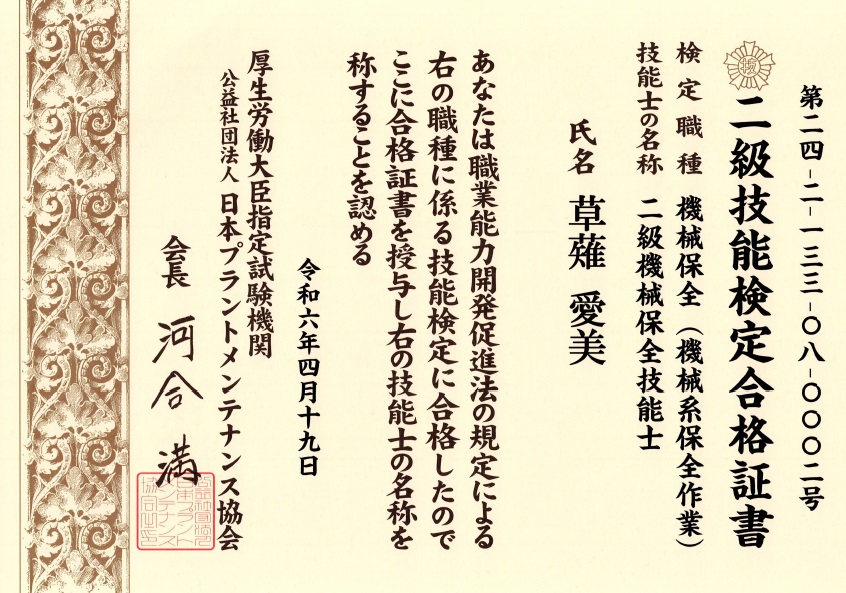 第二四-二-一三三-〇八-〇〇〇二号
二級技能検定合格証書
検定職種 機械保全（機械系保全作業）
技能士の名称 二級機械保全技能士
氏名 草薙 愛美
あなたは職業能力開発促進法の規定による
右の職種に係る技能検定に合格したので
ここに合格証書を授与し右の技能士の名称を
称することを認める
令和六年四月十九日
厚生労働大臣指定試験機関
公益社団法人 日本プラントメンテナンス協会
会長 河合 満